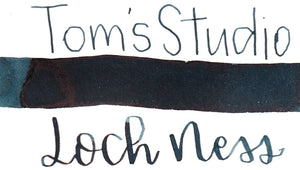 Tom's Studio
Loch Ness